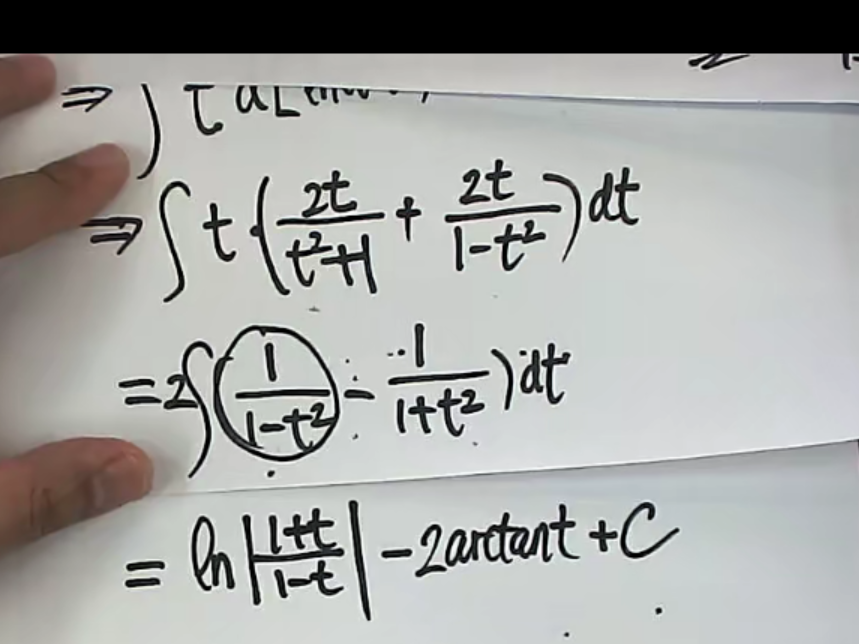 ⇒ ∫ t
⇒ ∫ t·(2t/(t²+1) + 2t/(1-t²)) dt
= 2∫(1/(1-t²) - 1/(1+t²)) dt
= ln|(1+t)/(1-t)| - 2arctant + C